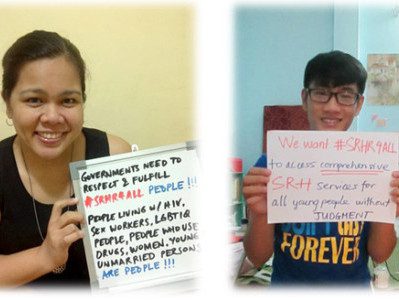 GOVERNMENTS NEED TO
RESPECT & FULFILL
#SRHR4ALL PEOPLE !!!
PEOPLE LIVING W/ HIV,
SEX WORKERS, LGBTIQ
PEOPLE, PEOPLE WHO USE
DRUGS, WOMEN, YOUNG
UNMARRIED PERSONS
ARE PEOPLE !!!
We want #SRHR4ALL
to access comprehensive
SRH services for
all young people without
JUDGMENT
FOREVER